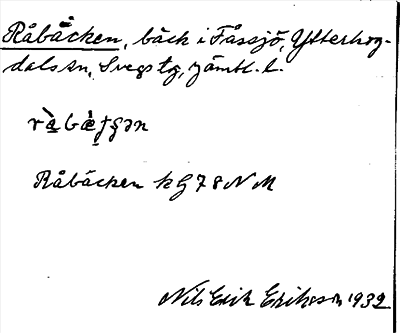 Råbäcken, bäck i Fåssjö, Ytterhog-
dals sn, Svegs tg, Jämtl. l.
Råbäcken kg 78 NM
Nils Erik Eriksson 1932